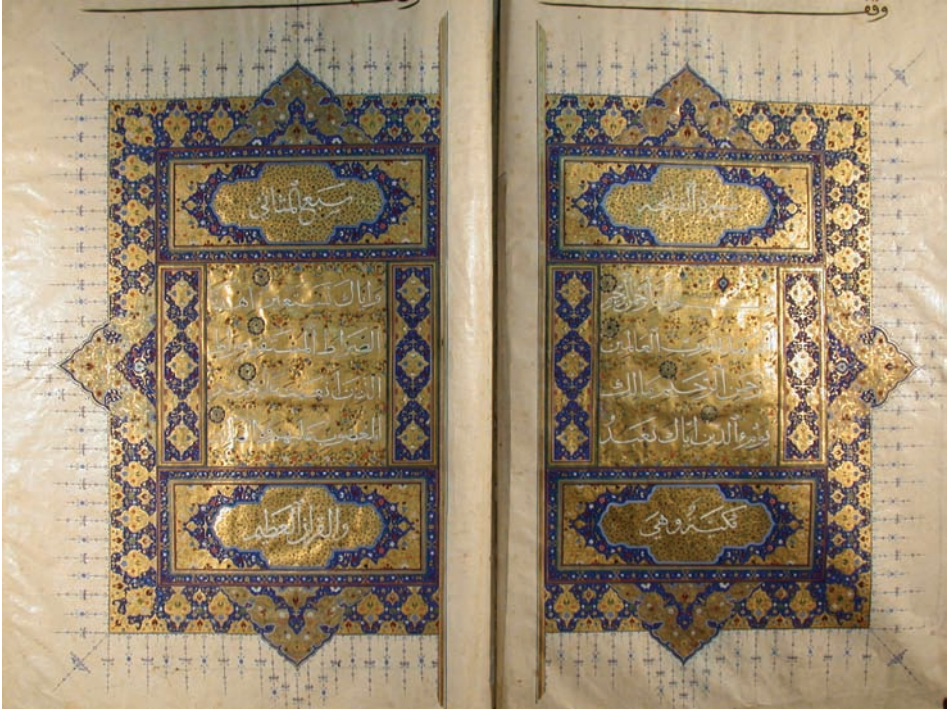 وقف
سورة الفاتحة
الرحمن الرحيم
رب العالمين
الرحمن الرحيم مالك
يوم الدين اياك نعبد
مكية وهي
سبع المثاني
واياك نستعين اهدنا
الصراط المستقيم صراط
الذين انعمت
المغضوب عليهم ولا
والقران العظيم